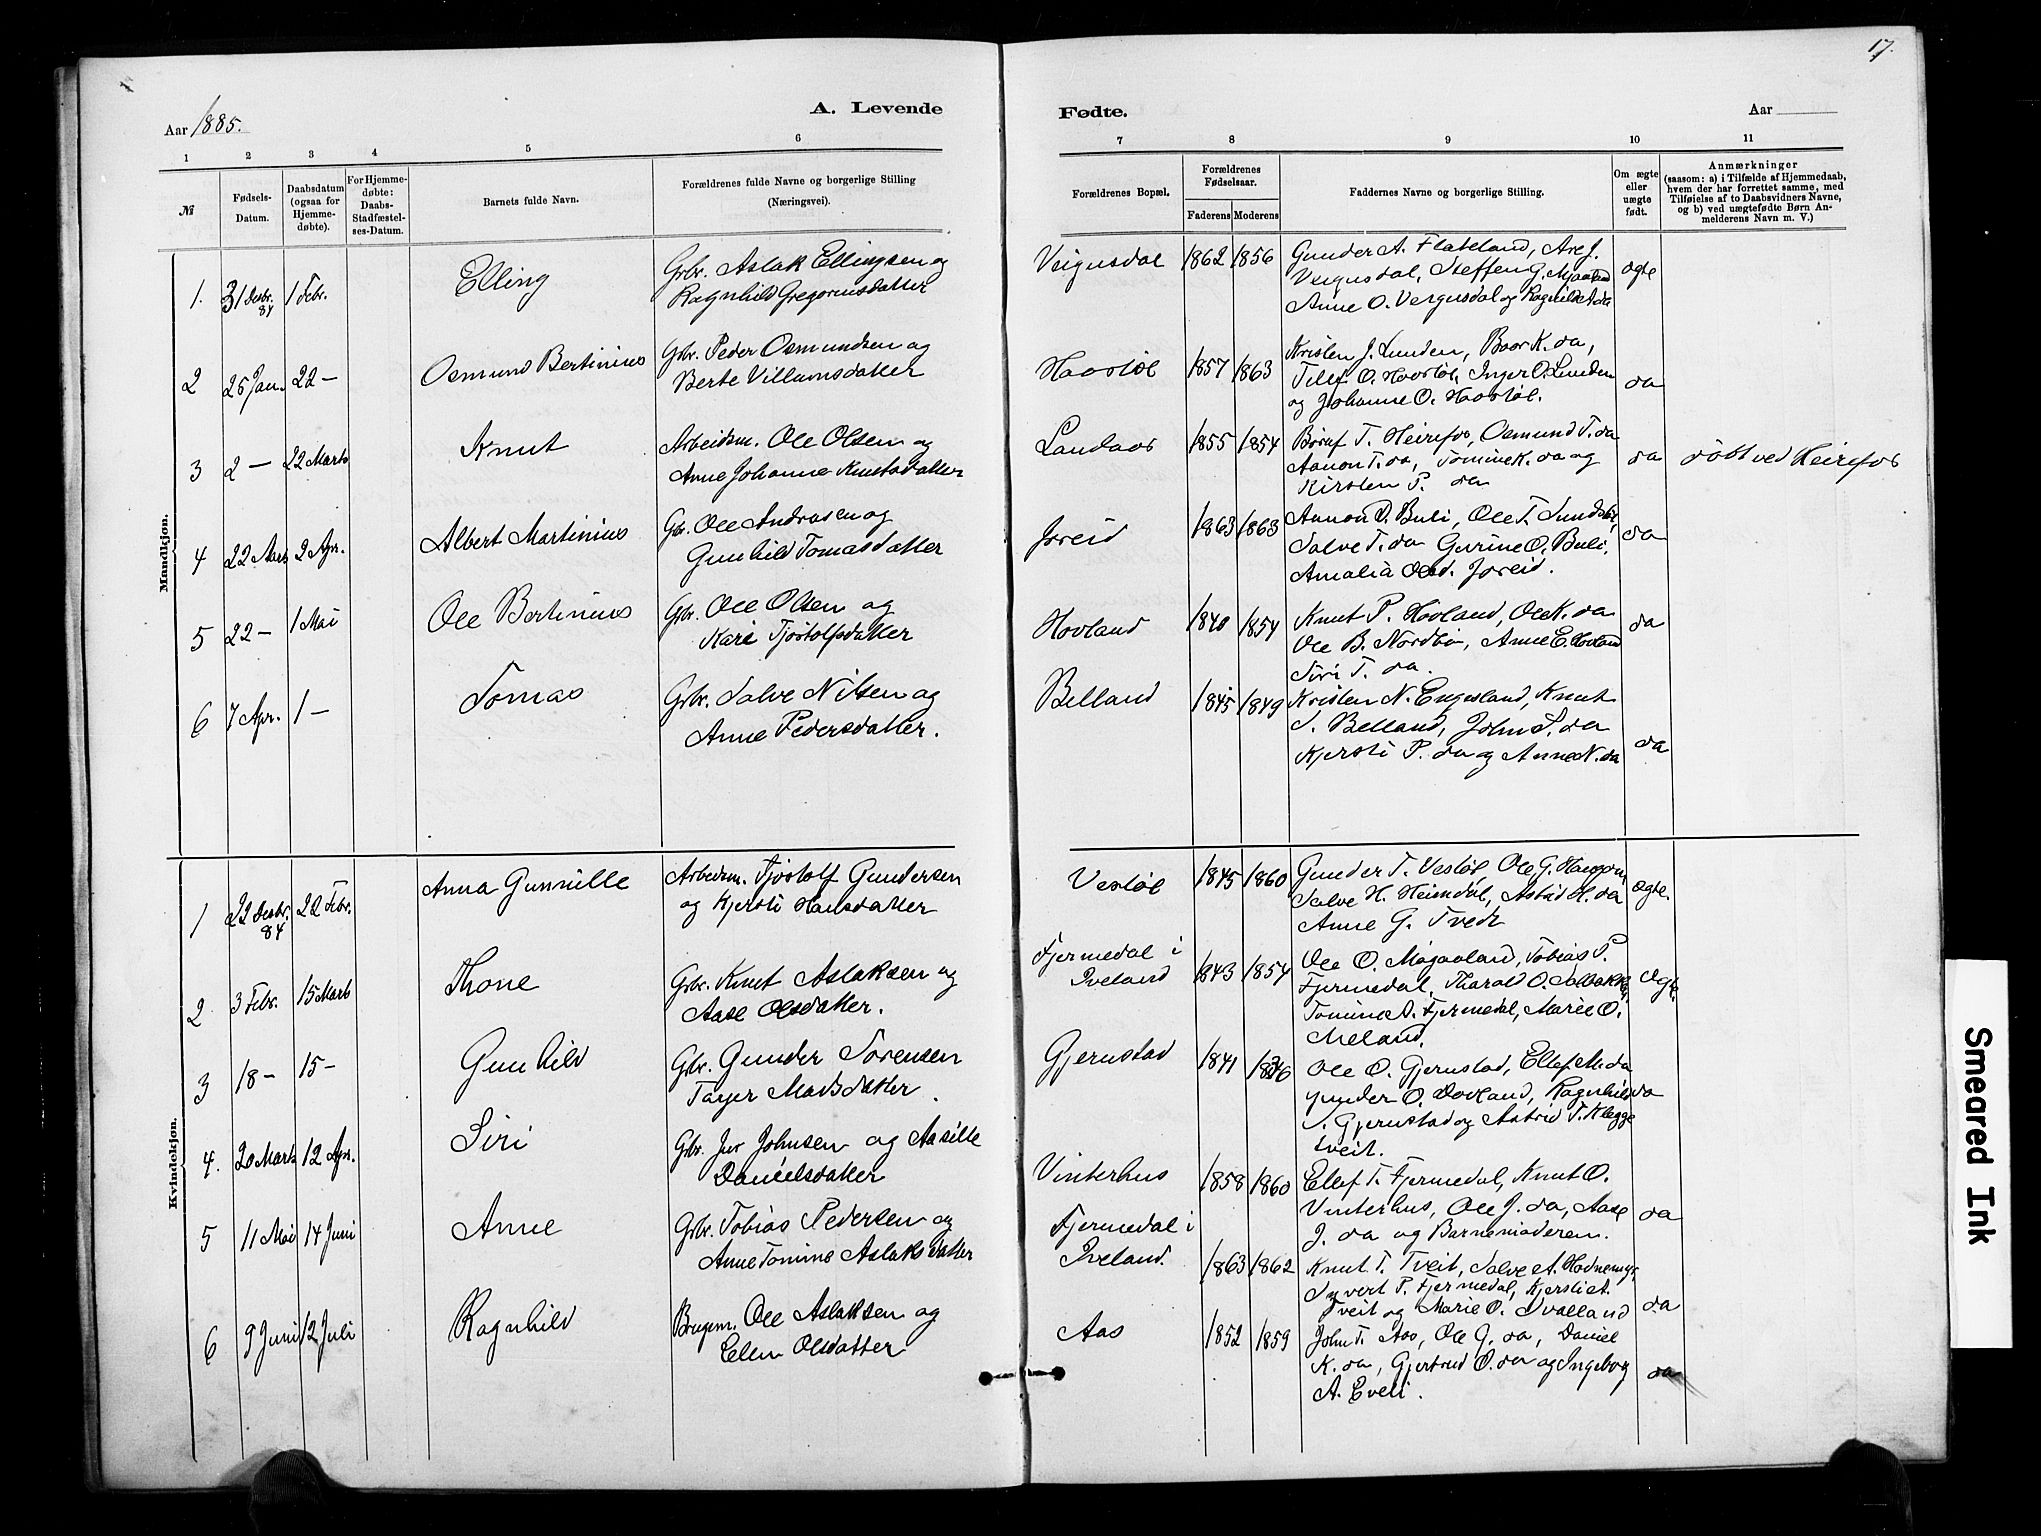 17.
A. Levende
Fødte.
Aar 1885.
Aar
1 2 3 4 5 6
7 8 9 10 11
№
Fødsels-Datum.
Daabsdatum (ogsaa for Hjemme-døbte).
For Hjemme-døbte: Daabs-Stadfæstel-ses-Datum.
Barnets fulde Navn.
Forældrenes fulde Navne og borgerlige Stilling
(Næringsvei).
Forældrenes Bopæl.
Forældrenes Fødselsaar.
Faderens Moderens
Faddernes Navne og borgerlige Stilling.
Om ægte eller uægte født.
Anmærkninger
(saasom: a) i Tilfælde af Hjemmedaab,
hvem der har forrettet samme, med
Tilføielse af to Daabsvidners Navne,
og b) ved uægtefødte Børn An-
melderens Navn m. V.)
Mandkjøn.
1. 31 Decbr. 84 1 Febr. Elling
Gbr. Aslak Ellingsen og
Ragnhild Gregoriusdatter
Veigusdal 1862 1856
Gunder A. Flateland, Are J.
Veigusdal, Steffen G. Mjaaland
Anne O. Veigusdal og Ragnhild A. da
ægte
2 25 Jan. 22 — Osmund Bertinius
Gbr. Peder Osmundsen og
Berte Villumsdatter
Hovstøl 1857 1863
Kristen J. Lunden, Boor K. da,
Tellef O. Hovstøl, Inger O. Lunden
og Johanne O. Hovstøl.
da
3 2 — 22 Marts Knut
Arbeidsm. Ole Olsen og
Anne Johanne Knutsdatter
Landaas 1855 1854
T. Heirefos, Osmund T. da
Aanon T. da, Tomine K. da og
Kirsten P. da
da
døbt ved Heirefos
4 22 Marts 2 Apr. Albert Martinius
Gbr. Ole Andrasen og
Gunhild Tomasdatter
Joreid 1863 1863
Aanon O. Buli, Ole T.
Salve T. da Gurine O. Buli,
Amalia Olsd. Joreid.
da
5 22 — 1 Mai Ole Bertinius
Gbr. Ole Olsen og
Kari Tjostolfsdatter
Hovland 1840 1854
Knut P. Hovland, Ole K. da
Ole B. Nordbø, Anne E. Hovland
Siri T. da.
da
6 7 Apr. 1 — Tomas
Gbr. Salve Nilsen og
Anne Pedersdatter.
Belland 1845 1849
Kristen N. Engesland, Knut
S. Belland, John S. da
Kjersti P. da og Anne N. da
da
Kvindekjøn.
1 22 Decbr. 84 22 Febr. Anna Gunnille
Arbeidsm. Tjostolf Gundersen
og Kjersti Hansdatter
Vestøl 1845 1860
Gunder T. Vestøl, Ole G.
Salve H. Heimdal, H. da
Anne G. Tvedt
ægte.
2 3 Febr. 15 Marts Thone
Gbr. Knut Aslaksen og
Aase Olsdatter.
Fjermedal i
Iveland
1843 1854
Ole O. Mjaaland, Tobias P.
Fjermedal, Tharald O.
Tomine A. Fjermedal, Marie O.
Meland.
Ægte.
3 18 — 15 — Gunhild
Gbr. Gunder Sørensen
Targer Madsdatter
Gjerustad 1841 1846
Ole O. Gjerustad, Ellef M. da
Gunder O. Dovland, Ragnhild
S. Gjerustad og Astrid T. Klegge
tveit.
da
4. 20 Marts 12 Apr. Siri
Gbr. Jur Johnsen og Aasille
Danielsdatter
Vinterhus 1858 1860
Ellef T. Fjermedal, Knut O.
Vinterhus, Ole J. da, Aase
J. da og Barnemoderen.
da
5 11 Mai 14 Juni Anne
Gbr. Tobias Pedersen og
Anne Tomine Aslaksdatter
Fjermedal i
Iveland.
1863 1862
Knut T. Tveit, Salve A.
Syvert P. Fjermedal, Kjersti A.
Tveit og Marie O. Ivalland
da
6 9 Juni 12 Juli Ragnhild
Brugsm. Ole Aslaksen og
Ellen Olsdatter
Aas 1852 1859
John T. Aas, Ole G. da, Daniel
K. da, Gjertrud O. da og Ingeborg
A. Eveli.
da
Smeared Ink